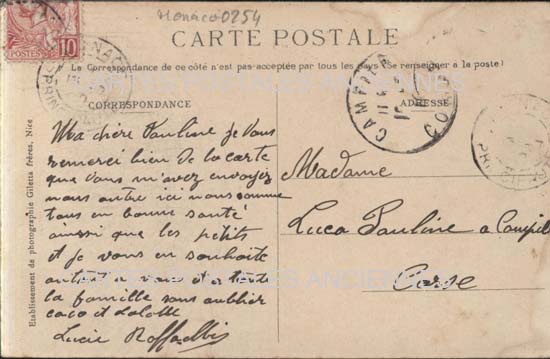 Monaco 0254
POSTES 10
CARTE POSTALE
La Correspondance de ce côté n'est pas acceptée par tous les pays (Se renseigner à la poste)
CORRESPONDANCE
ADRESSE
Ma chère Pauline je vous
remerci bien de la carte
que vous m'avez envoyez
nous autre ici nous somme
tous en bonne santé
ainsi que les petits
et je vous en souhaite
autant à vous et a toute
la famille sans oublier
caco et Lalotte
Lucie
Madame
Luca Pauline a Campile
Corse
Etablissement de photographie Giletta frères, Nice
CARTES POSTALES ANCIENNES
CARTES POSTALES ANCIENNES